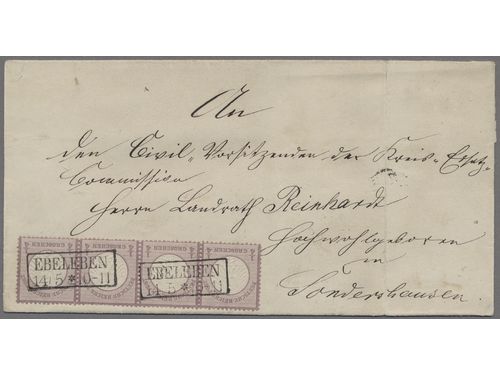 An
den Civil-Vorsitzenden der Kreis-Ersatz-
Commission
Herrn Landrath Reinhardt
Hochwohlgeboren
in
Sondershausen.
EBELEBEN
14 5 * 10-11
EBELEBEN
14 5 *